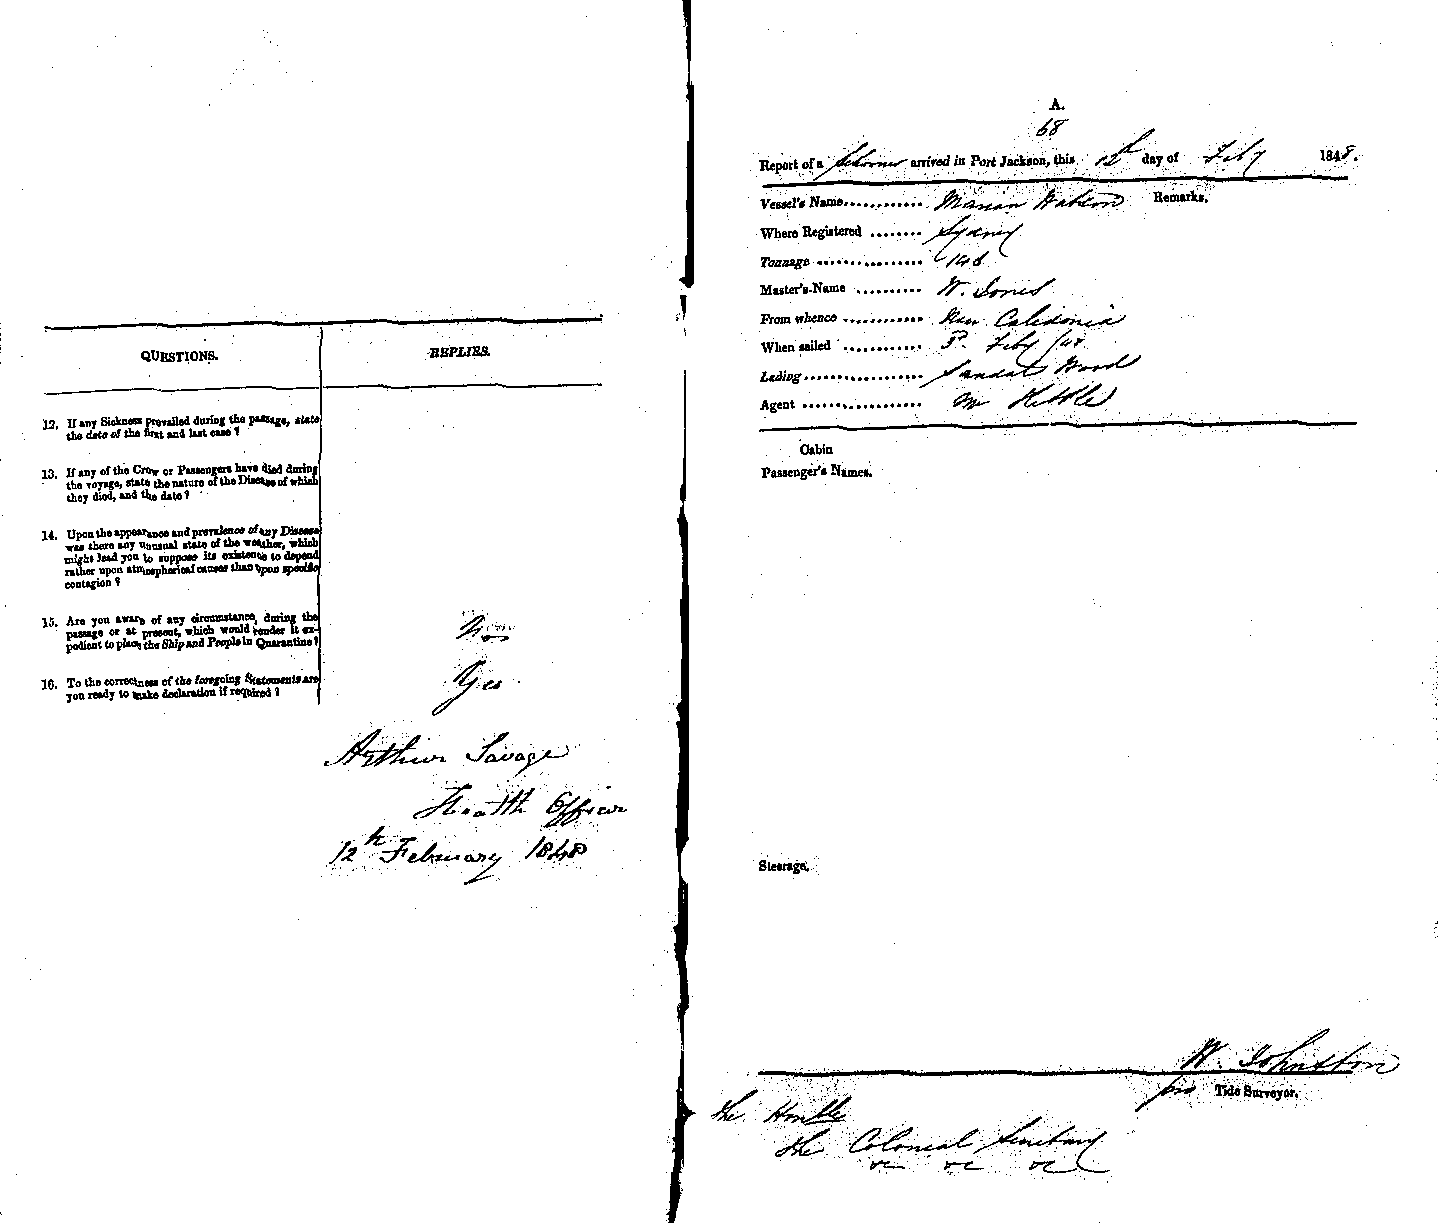 QUESTIONS.
REPLIES.
12. If any Sickness prevailed during the passage, state
the date of the first and last case ?
13. If any of the Crew or Passengers have died during
the voyage, state the nature of the Disease of which
they died, and the date ?
14. Upon the appearance and prevalence of any Disease
was there any unusual state of the weather, which
might lead you to suppose its existence to depend
rather upon atmospherical causes than upon specific
contagion ?
15. Are you aware of any circumstance, during the
passage or at present, which would render it ex-
pedient to place the Ship and People in Quarantine ?
No
16. To the correctness of the foregoing Statements are
you ready to make declaration if required ?
Yes
Arthur Savage
Health Officer
12th February 1848
A.
68
Report of a Schooner arrived in Port Jackson, this 12th day of Feby 1848.
Vessel's Name............ Marian Watson Remarks.
Where Registered ........ Sydney
Tonnage ................ 148
Master's-Name .......... W. Jones
From whence ............ New Caledonia
When sailed ............ Feby /48
Lading.................. Sandal Wood
Agent .................. Mr
Cabin
Passenger's Names.
Steerage.
W. Johnston
pro Tide Surveyor.
The Honble
The Colonial Secretary
&c &c &c